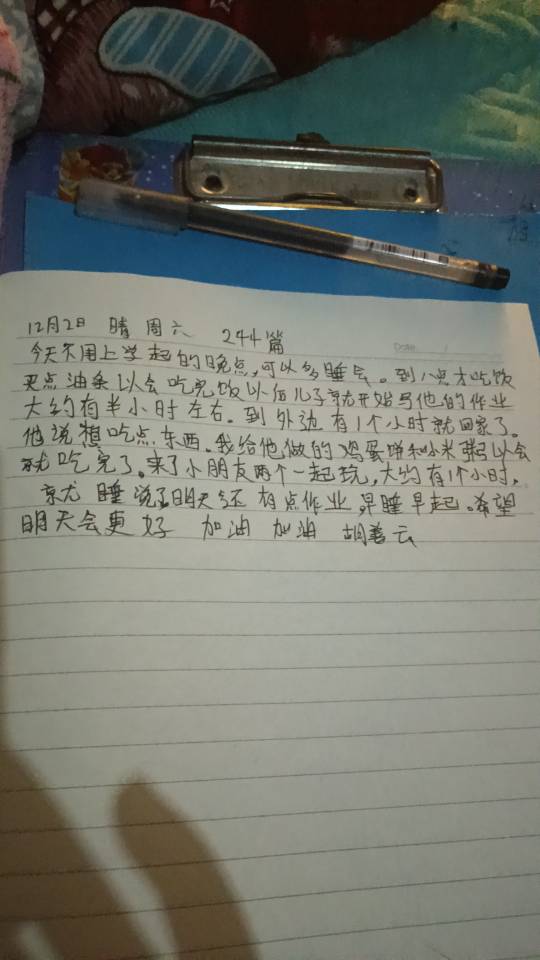 12月2日 晴 周六 244篇
Date
今天不用上学起的晚点,可以多睡会。到八点才吃饭
买点油条以会吃完饭以后儿子就开始写他的作业
大约有半小时左右。到外边有1个小时就回家了。
他说想吃点东西。我给他做的鸡蛋饼和小米粥以会
就吃完了。来了小朋友两个一起玩,大约有1个小时,
就睡说了明天还有点作业,早睡早起。希望
明天会更好 加油 加油 胡善云